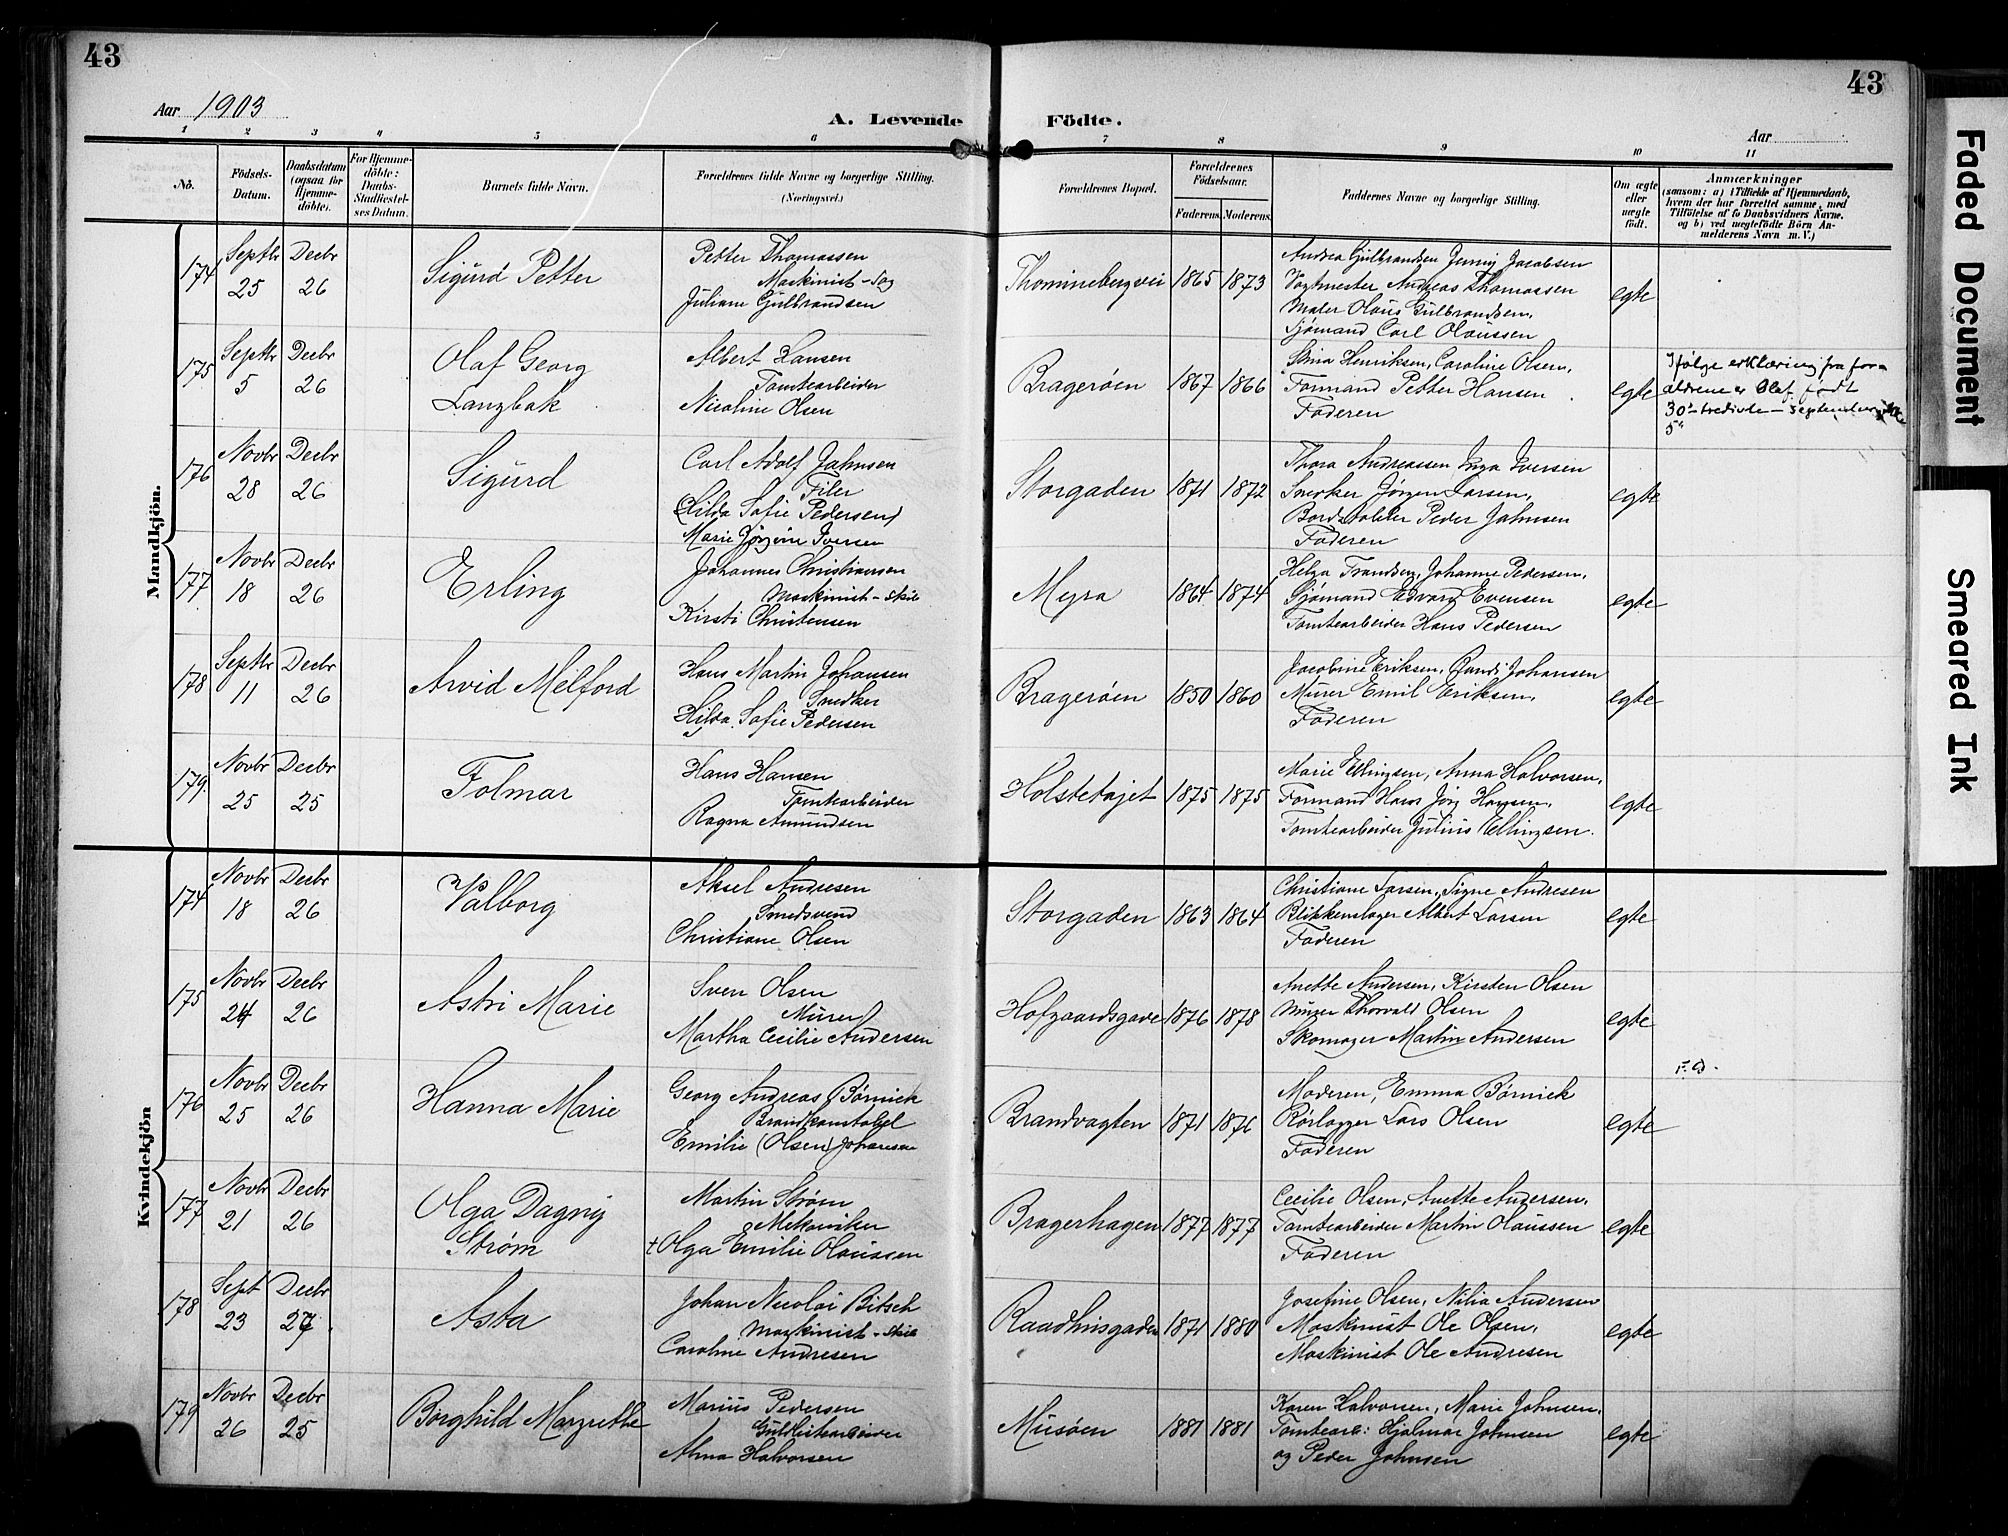 43
43
Aar 1903
A. Levende Födte.
Aar
1 2 3 4 5 6 7 8 9 10 11
No.
Födsels-Datum.
Daabsdatum (ogsaa for Hjemmedöbte).
For Hjemmedöbte: Daabs-Stadfæstelses Datum.
Barnets fulde Navn.
Forældrenes fulde Navne og borgerlige Stilling. (Næringsvei.)
Forældrenes Bopæl.
Forældrenes Födselsaar.
Faderens. Moderens.
Faddernes Navne og borgerlige Stilling.
Om ægte eller uægte födt.
Anmærkninger
(saasom: a) i Tilfælde af Hjemmedaab, hvem der har forrettet samme, med Tilföielse af to Daabsvidners Navne. og b) ved uægtefödte Börn Anmelderens Navn m. V.)
Mandkjön.
174 Septbr 25 Decbr 26
Sigurd Petter
Petter Thomassen
Maskinist-Sag
Juliane Gulbrandsen
Thominebergvei 1865 1873
Andrea Gulbrandsen Jenny Jacobsen
Vagtmester Andreas Thomassen
Maler Olaus Gulbrandsen,
Sjømand Carl Olaussen
egte
175 Septbr 5 Decbr 26
Olaf Georg
Langbak
Albert Hansen
Tomtearbeider
Nicoline Olsen
Bragerøen 1867 1866
Stina Henriksen, Caroline Olsen,
Formand Petter Hansen
Faderen
egte
Ifølge erklæring fra for-
ældrene er Olaf født
30te - tredivte - september ikke
5te
176 Novbr 28 Decbr 26
Sigurd
Carl Adolf Jahnsen
Filer
(Hilda Sofie Pedersen)
Marie Jørgine Iversen
Storgaden 1871 1872
Thora Andreassen Inga Iversen
Snedker Jørgen Larsen,
Bordstabler Peder Jahnsen
Faderen
egte
177 Novbr 18 Decbr 26
Erling
Johannes Christiansen
Maskinist-Skib
Kirsti Christensen
Myra 1864 1874
Helga Frandsen, Johanne Pedersen,
Sjømand Edvard Evensen
Tomtearbeider Hans Pedersen
egte
178 Septbr 11 Decbr 26
Arvid Melford
Hans Martin Johansen
Snedker
Hilda Sofie Pedersen
Bragerøen 1850 1860
Jacobine Eriksen, Randi Johansen
Murer Emil Eriksen,
Faderen
egte
179. Novbr 25 Decbr 25
Folmar
Hans Hansen
Tomtearbeider
Ragna Amundsen
Holstetøjet 1875 1875
Marie Ellingsen, Anna Halvorsen,
Formand Hans Jørg Hansen,
Tomtearbeider Julius Ellingsen.
egte
Kvindekjön
174 Novbr 18 Decbr 26
Valborg
Aksel Andresen
Smedsvend
Christiane Olsen
Storgaden 1863 1864
Christiane Larsen, Signe Andresen
Blikkenslager Albert Larsen
Faderen
egte
175 Novbr 24 Decbr 26
Astri Marie
Sven Olsen
Murer
Martha Cecilie Andersen
Hofgaardsgade 1876 1878
Anette Andersen, Kirsten Olsen
Murer Thorvald Olsen
Skomager Martin Andersen
egte
176 Novbr 25 Decbr 26
Hanna Marie
Georg Andreas Børnick
Brandkonstabel
Emilie (Olsen) Johansen
Brandvagten 1871 1876
Moderen, Emma Børnick
Rørlægger Lars Olsen
Faderen
egte
F.D.
177 Novbr 21 Decbr 26
Olga Dagny
Strøm
Martin Strøm
Mekaniker
+Olga Emilie Olaussen
Bragerhagen 1877 1877
Cecilie Olsen, Anette Andersen,
Tomtearbeider Martin Olaussen
Faderen
egte
178 Sept 23 Decbr 27
Asta
Johan Nicolai Bitsch
Maskinist-Skib
Caroline Andresen
Raadhusgaden 1871 1880
Josefine Olsen, Nilia Andersen
Maskinist Ole Olsen,
Maskinist Ole Andresen
egte
179 Novbr 26 Decbr 25
Borghild Margrethe
Marius Pedersen
Guldlistearbeider
Alma Halvorsen
Musøen 1881 1881
Karen Halvorsen, Marie Johnsen,
Tomtearb: Hjalmar Johnsen
og Peder Johnsen
egte
Faded Document
Smeared Ink